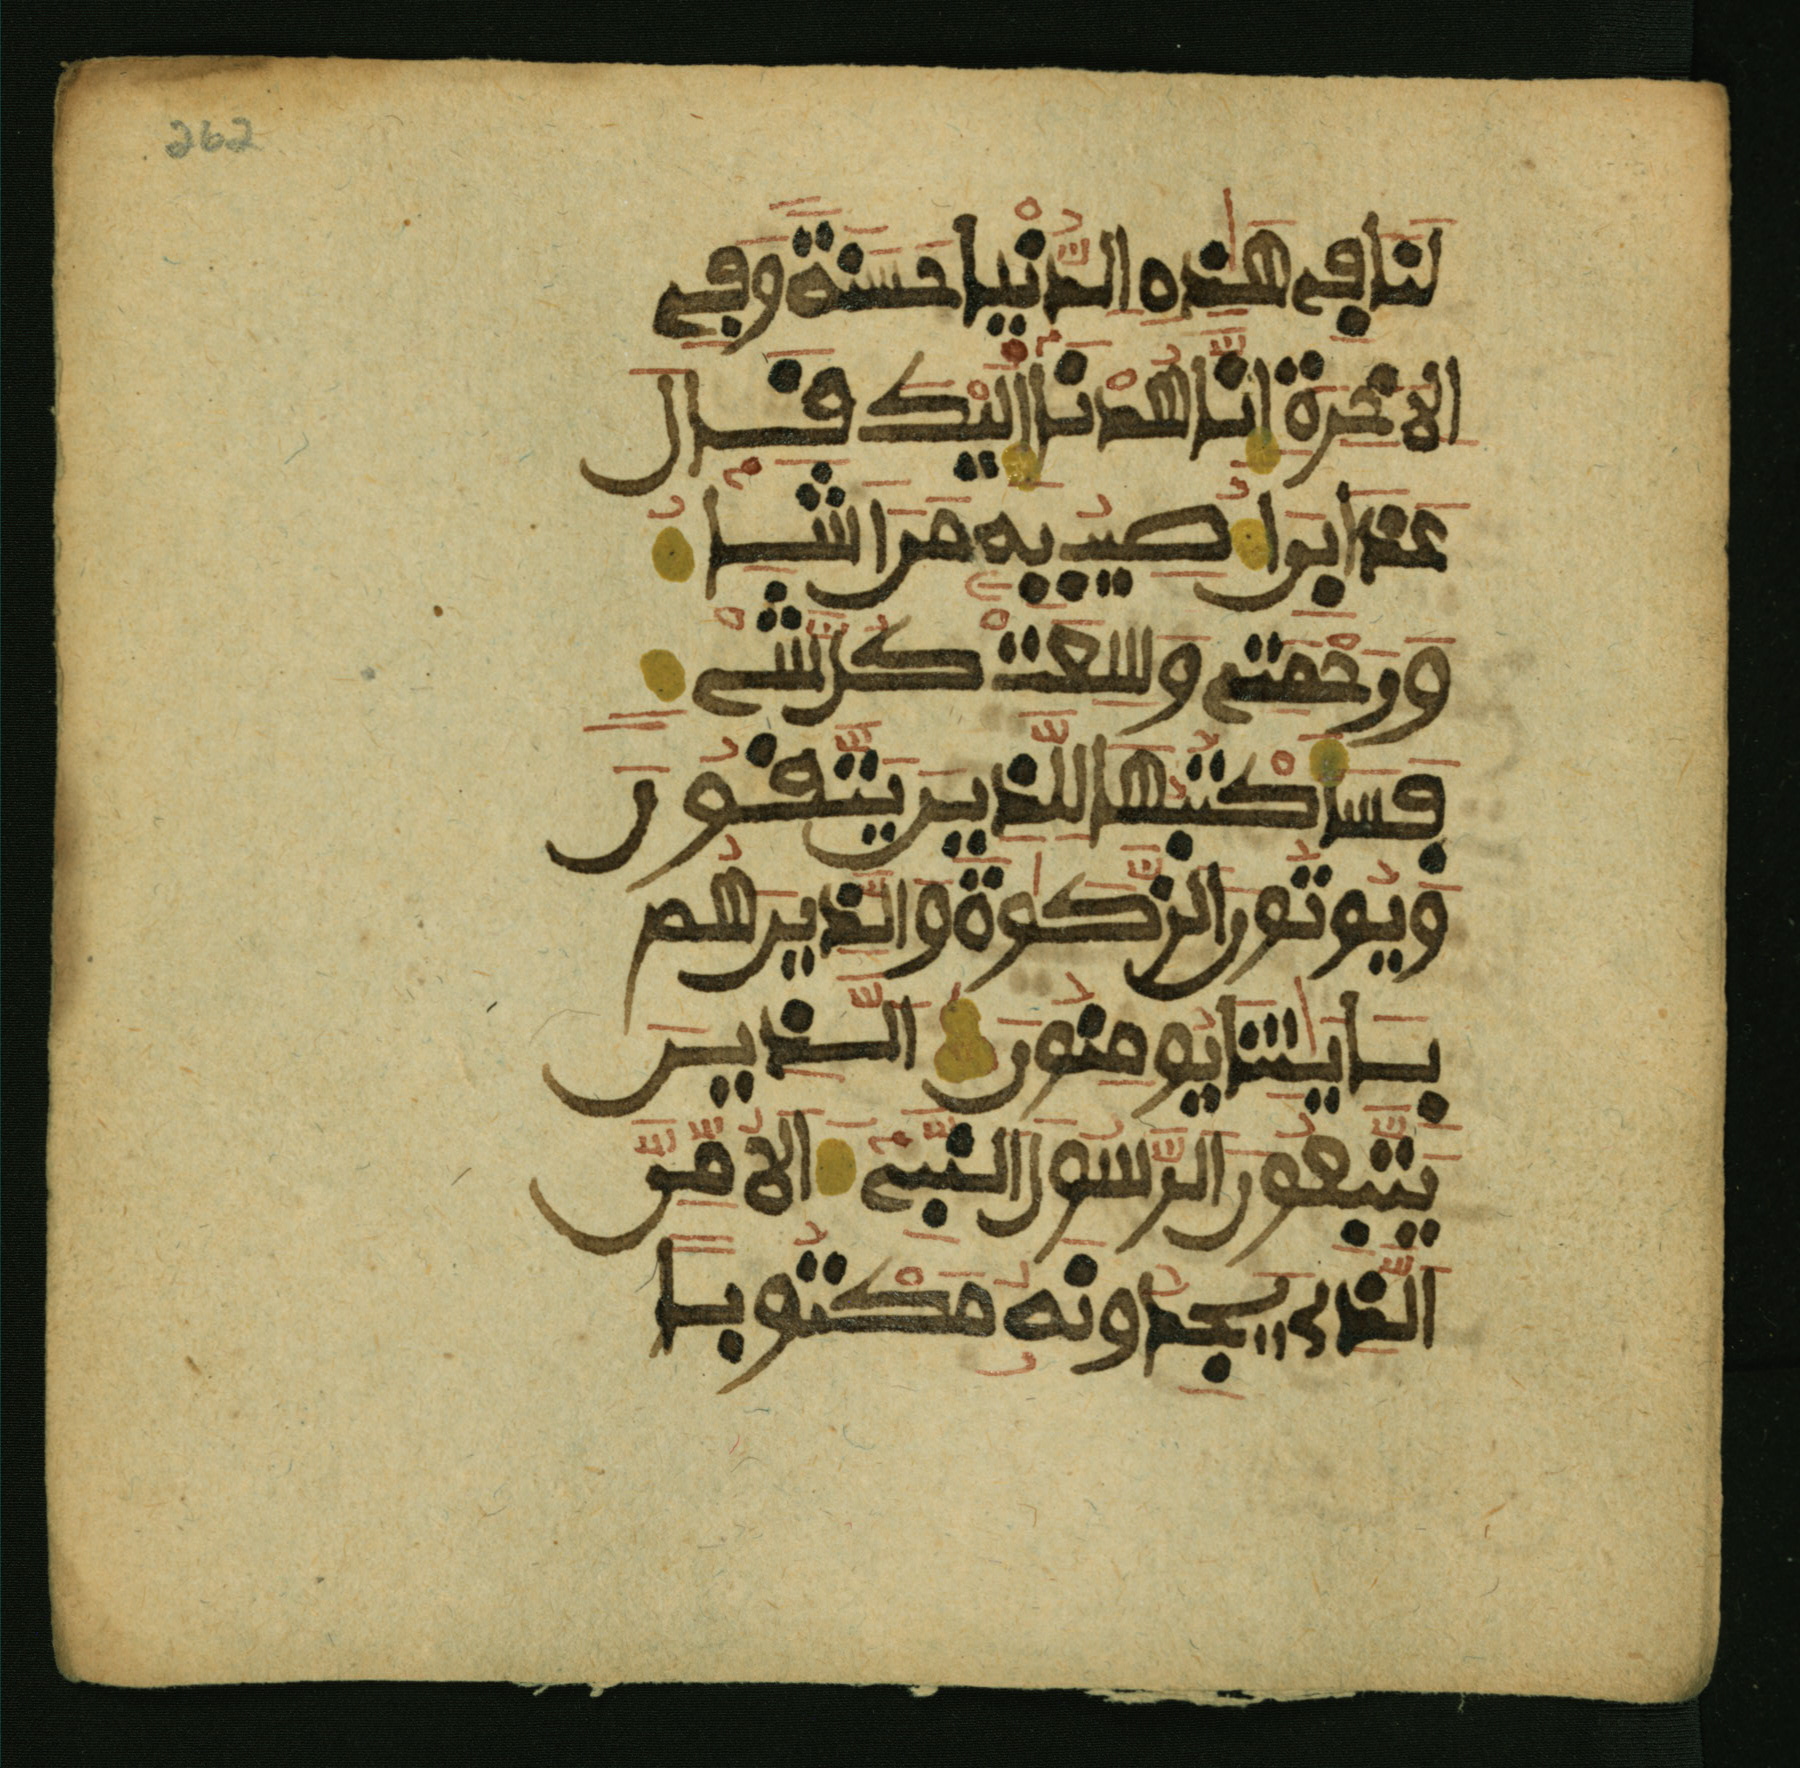 262
لنا في هذه الدنيا حسنة وفي
الاخرة انا هدنا اليك قال
عذابي اصيب به من اشا
ورحمتي وسعت كل شي
فساكتبها للذين يتقون
ويوتون الزكوة والذين هم
بايتنا يومنون الذين
يتبعون الرسول النبي الامي
الذي يجدونه مكتوبا